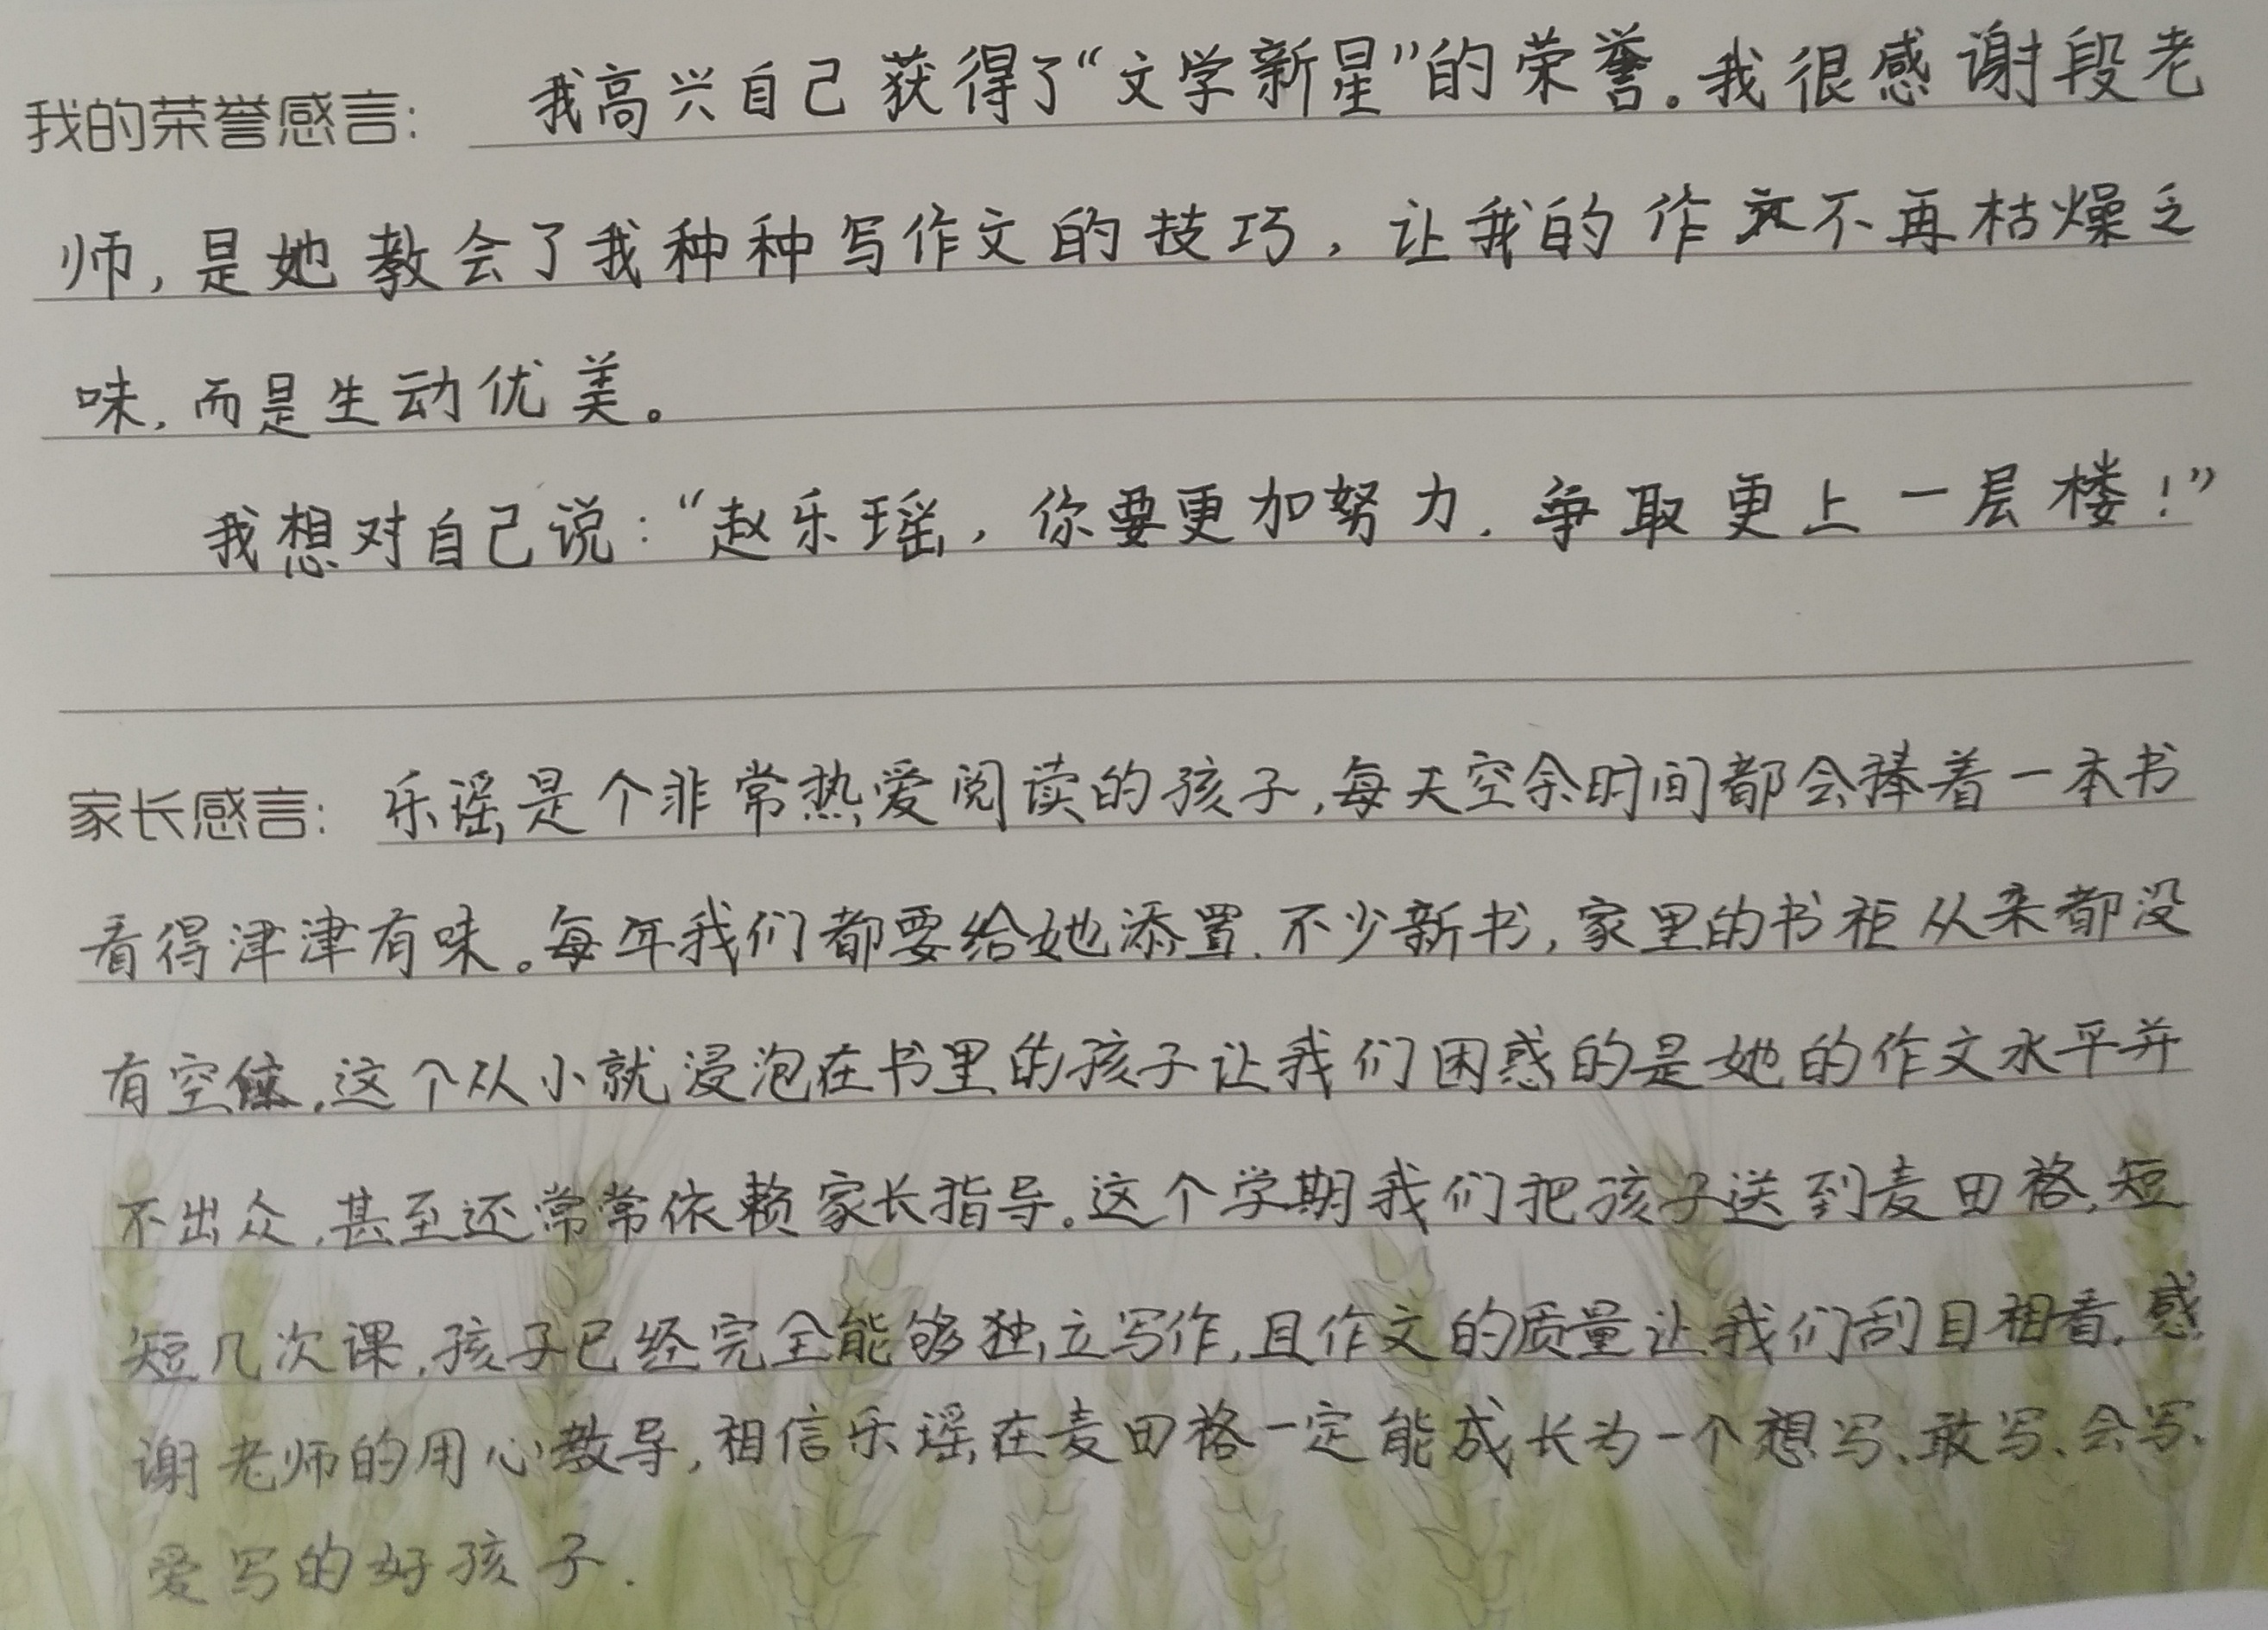 我的荣誉感言： 我高兴自己获得了“文学新星”的荣誉。我很感谢段老
师，是她教会了我种种写作文的技巧，让我的作文不再枯燥乏
味，而是生动优美。
我想对自己说：“赵乐瑶，你要更加努力，争取更上一层楼！”
家长感言： 乐瑶是个非常热爱阅读的孩子，每天空余时间都会捧着一本书
看得津津有味。每年我们都要给她添置不少新书，家里的书柜从来都没
有空位，这个从小就浸泡在书里的孩子让我们困惑的是她的作文水平并
不出众，甚至还常常依赖家长指导。这个学期我们把孩子送到麦田格，短
短几次课，孩子已经完全能够独立写作，且作文的质量让我们刮目相看，感
谢老师的用心教导，相信乐瑶在麦田格一定能成长为一个想写、敢写、会写、
爱写的好孩子．